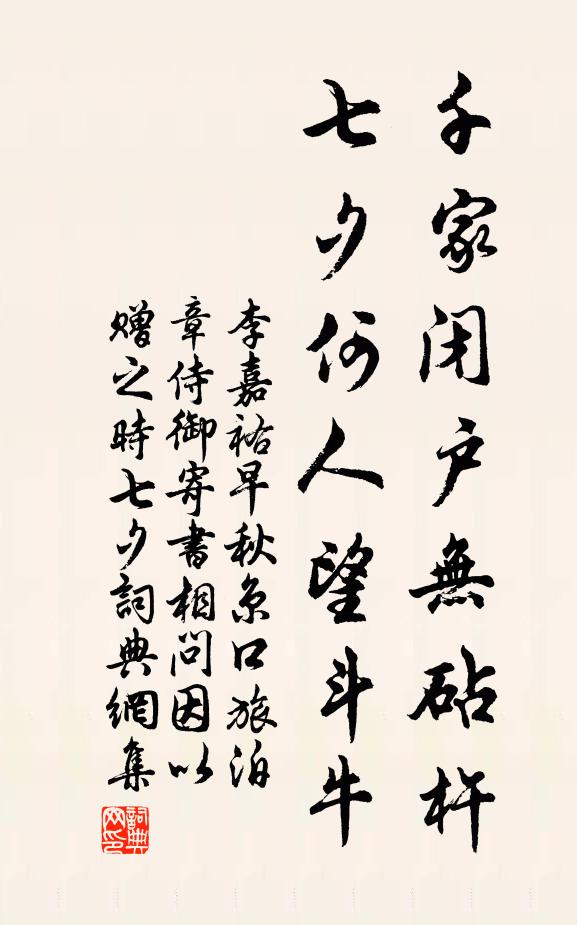 千家闭户無砧杵
七夕何人望斗牛
李嘉祐早秋京口旅泊
章侍御寄書相问因以
赠之時七夕詞典網集
詞典网印